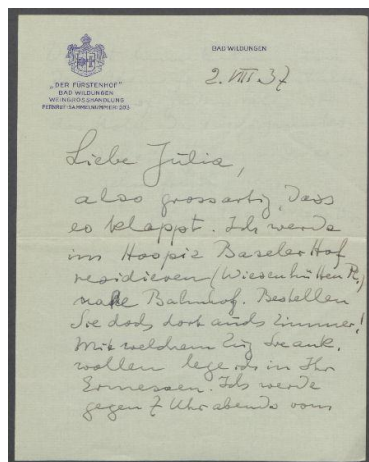 „DER FÜRSTENHOF"
BAD WILDUNGEN
WEINGROSSHANDLUNG
FERNRUF-SAMMELNUMMER 203
BAD WILDUNGEN
2. VIII 37
Liebe Julia,
also grossartig, dass
es klappt. Ich werde
im Hospiz Baseler Hof
residieren (Wiesenhütten Pl.)
nahe Bahnhof. Bestellen
Sie doch dort auch Zimmer!
Mit welchem Zug Sie ank.
wollen lege ich in Ihr
Ermessen. Ich werde
gegen 7 Uhr abends vom